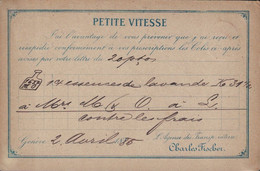 PETITE VITESSE
J'ai l'avantage de vous prévenir que j'ai reçu et
réexpédié conformément à vos prescriptions les Colis ci-après
suivant votre lettre du
essences de lavande Ko 31½
à Mrs M & O. à L.
contre les frais
Genève 2 Avril 86
L'Agence des Transp.
Charles Fischer.